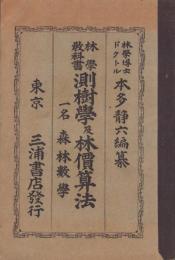 林學博士
ドクトル
本多靜六編纂
林學
教科書
測樹學及林價算法
一名 森林數學
東京 三浦書店發行